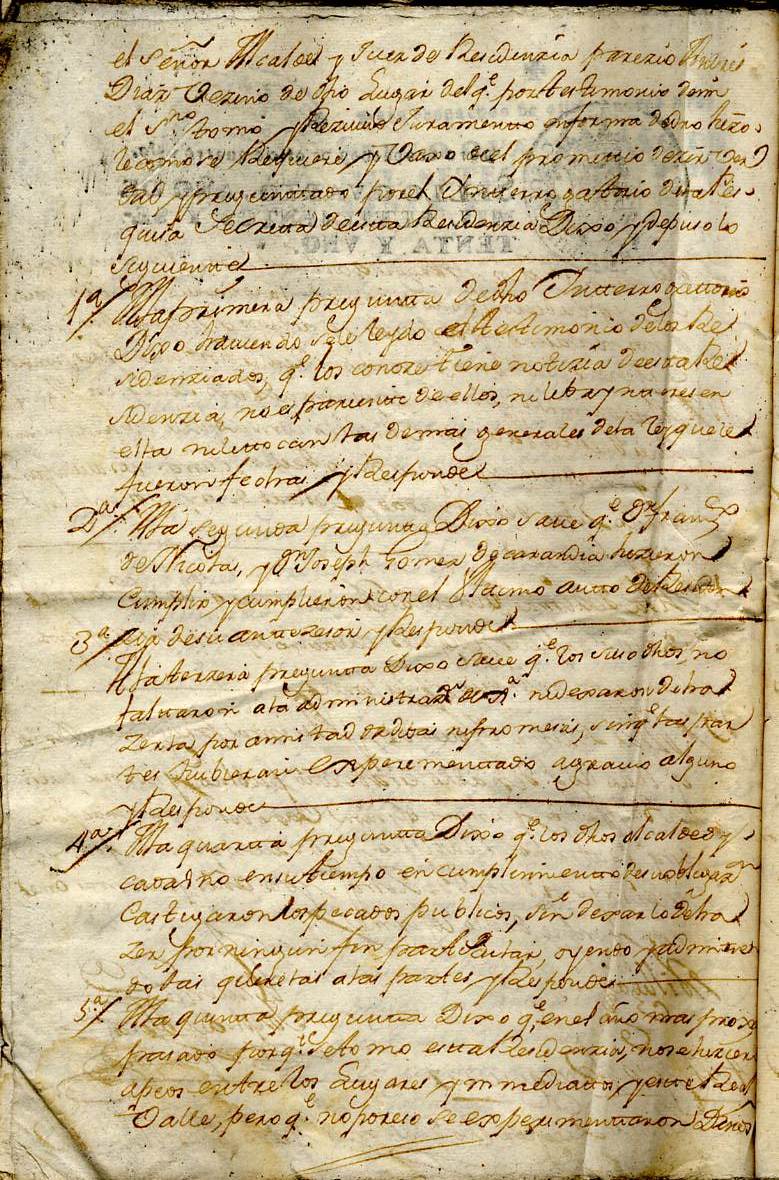 el señor Alcalde y Juez de Residenzia parezio Andres
Diaz vezino de dho Lugar del qe. por testimonio de mi
el sno. tomo y Rezivio Juramento en forma de dro hizo
lo como se Requiere y vaxo de el prometio dezir ver
dad y preguntado por el Interrogatorio de la Pes-
quisa Secreta de esta Residenzia Dixo y depuso lo
siguiente
1a/ A la primera pregunta de dho Interrogatorio
Dixo haviendosele leydo el testimonio de los Re
sidenziados, qe. los conoze tiene notizia de esta Re
sidenzia, no es pariente de ellos, ni lleba ynteres en
ella ni le tocan las demas generales de la ley que le
fueron fechas y Responde
2a/ A la segunda pregunta Dixo save qe. Dn. franco
de Nicolas, y Dn. Joseph Gomez de carandia hizieron
Cumplir y cumplieron con el Ultimo auto de Residen
zia de su antezesor y Responde
3a/ A la terzera pregunta Dixo save qe. los suso dhos, no
faltaron a la administrazn. de Ja. ni dexaron de ha
zerla por amistad dadibas ni promesas, sin qe. las par
tes hubieran experimentado agravio alguno
y Responde
4a/ A la quarta pregunta Dixo qe. los dhos alcaldes y
cada uno en su tiempo en cumplimiento de su obligazn
Castigaron los pecados publicos, sin dexarlo de ha
zer por ningun fin particular, oyendo y admitien
do las querellas a las partes y Responde
5a/ A la quinta pregunta Dixo qe. en el año mas proxo
pasado por qe. se tomo esta Residenzia, no se hizieron
apeos entre los Lugares ynmediatos, y este Real
Valle, pero qe. no por eso se experimentaron Daños
TENTA Y VNO.